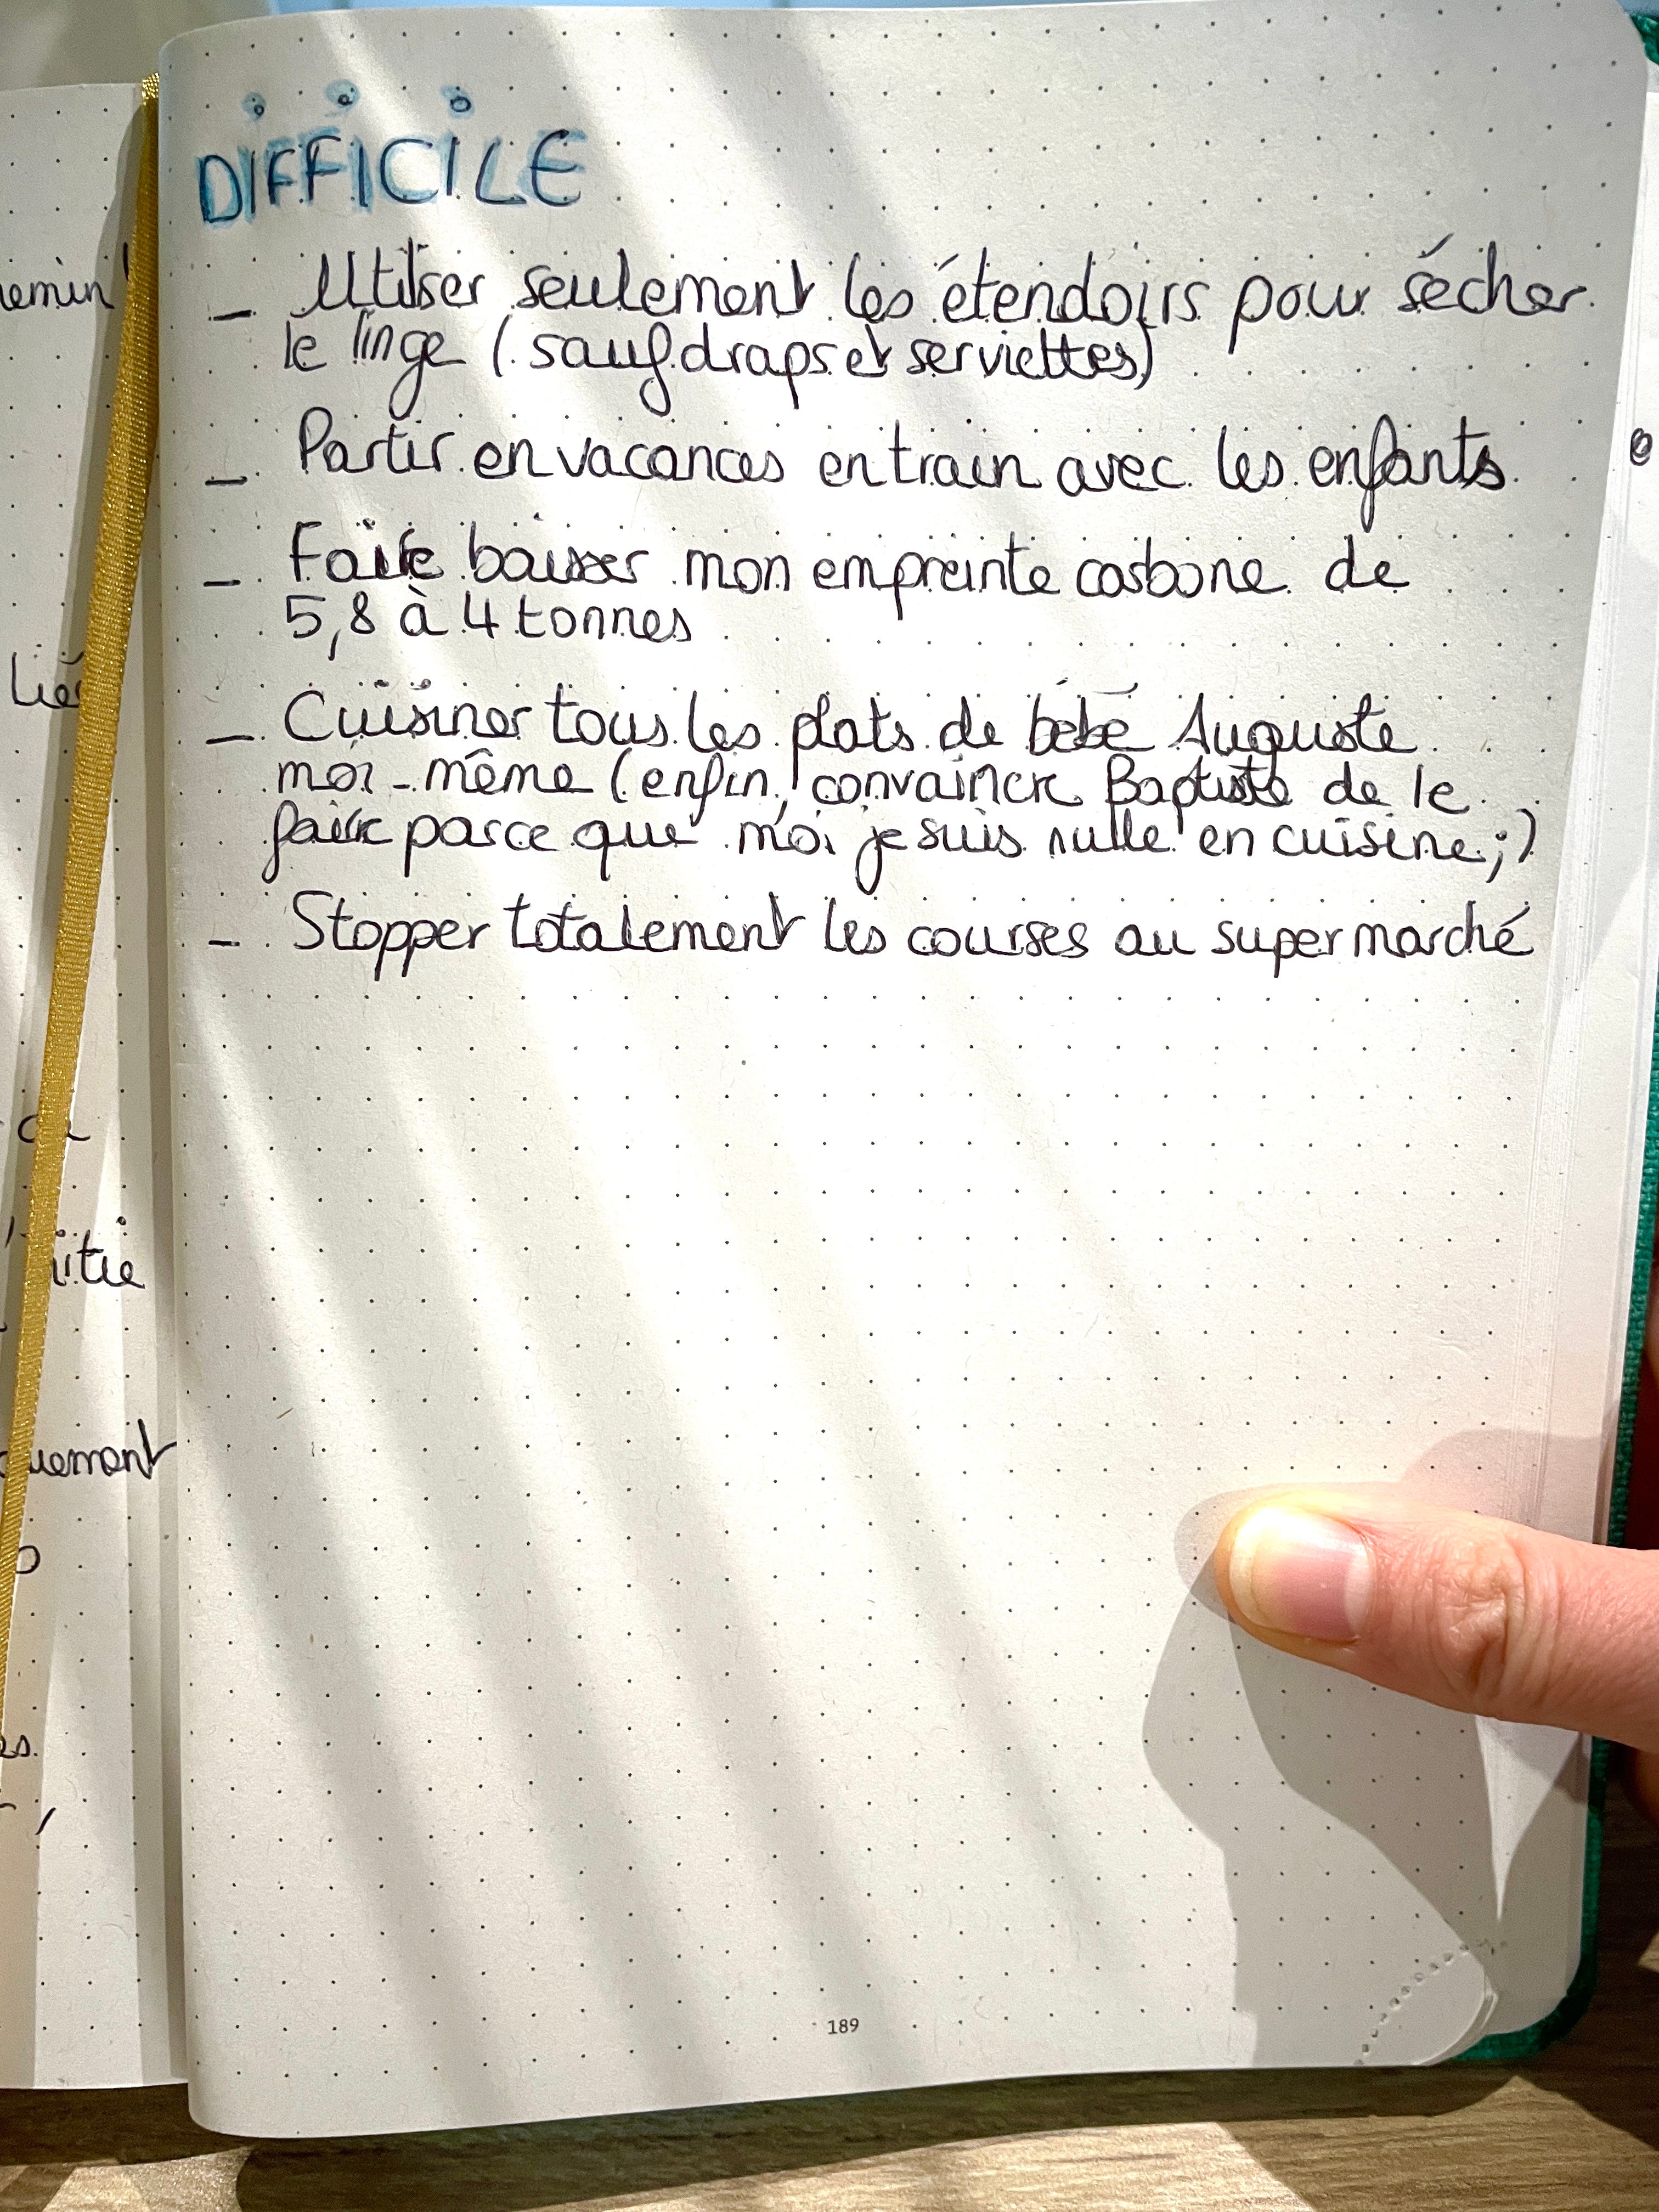 DIFFICILE
_ Utiliser seulement les étendoirs pour sécher
le linge (sauf draps et serviettes)
_ Partir en vacances en train avec les enfants
_ Faire baisser mon empreinte carbone de
5,8 à 4 tonnes
_ Cuisiner tous les plats de bébé Auguste
moi-même (enfin, convaincre Baptiste de le
faire parce que moi je suis nulle en cuisine ;)
_ Stopper totalement les courses au supermarché
189